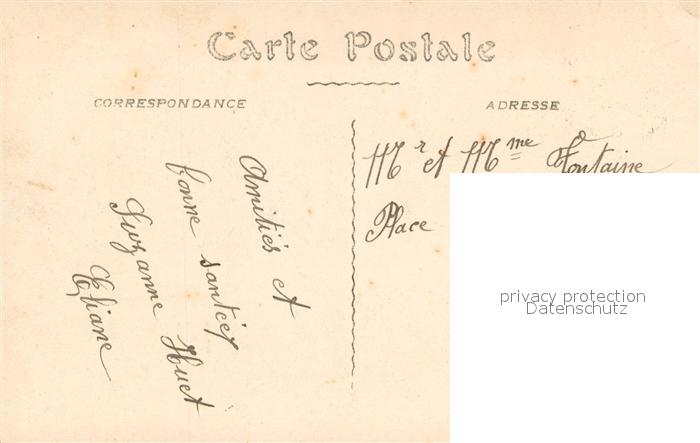 Carte Postale
CORRESPONDANCE
ADRESSE
Amitiés et
bonne santée
Suzanne Huet
Eliane
Mr et Mme Fontaine
Place
privacy protection
Datenschutz